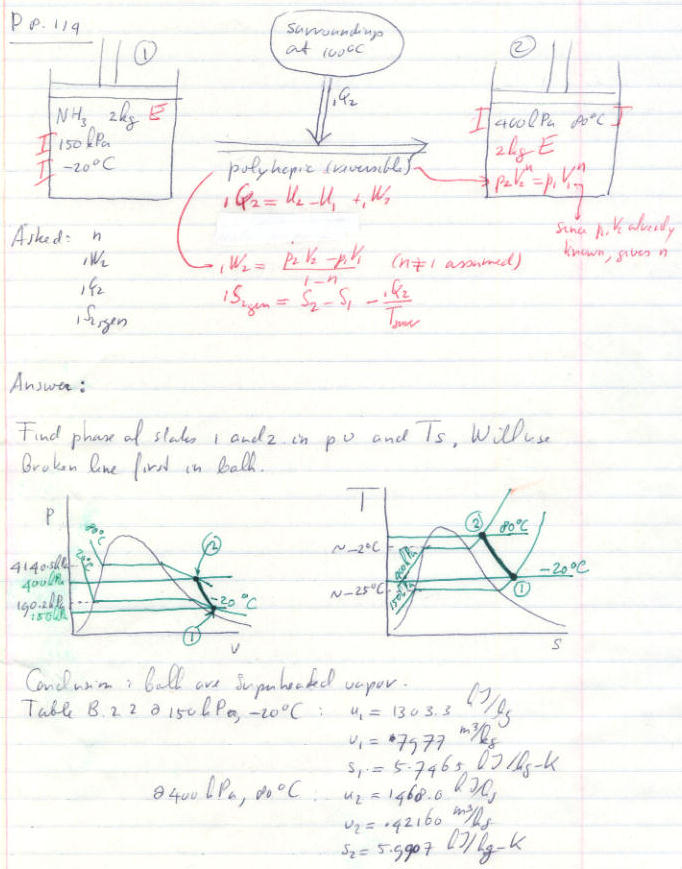 Pp. 119
①
surroundings
at 100°C
②
₁Q₂
NH₃ 2kg E
I 150 kPa
I -20°C
I 400 kPa 80°C I
2kg E
polytropic (reversible)
p₂V₂ⁿ = p₁V₁ⁿ
₁Q₂ = U₂ - U₁ + ₁W₂
since p, V₂ already
known, gives n
Asked: n
₁W₂
₁Q₂
₁S₂,gen
₁W₂ = (p₂V₂ - p₁V₁)/(1-n) (n≠1 assumed)
₁S₂gen = S₂ - S₁ - ₁Q₂/Tsurr
Answer:
Find phase of states 1 and 2 in pv and Ts. Will use
Broken line first in both.
P
80°C
-20°C
4140.5kPa
400kPa
190.2kPa
150kPa
②
-20°C
①
v
T
② 80°C
~-2°C
400kPa
-20°C
~-25°C
150kPa
①
s
Conclusion: both are superheated vapor.
Table B.2.2 @ 150 kPa, -20°C: u₁ = 1303.3 kJ/kg
v₁ = .7977 m³/kg
s₁ = 5.7465 kJ/kg-K
@ 400 kPa, 80°C: u₂ = 1468.0 kJ/kg
v₂ = .42160 m³/kg
s₂ = 5.9907 kJ/kg-K